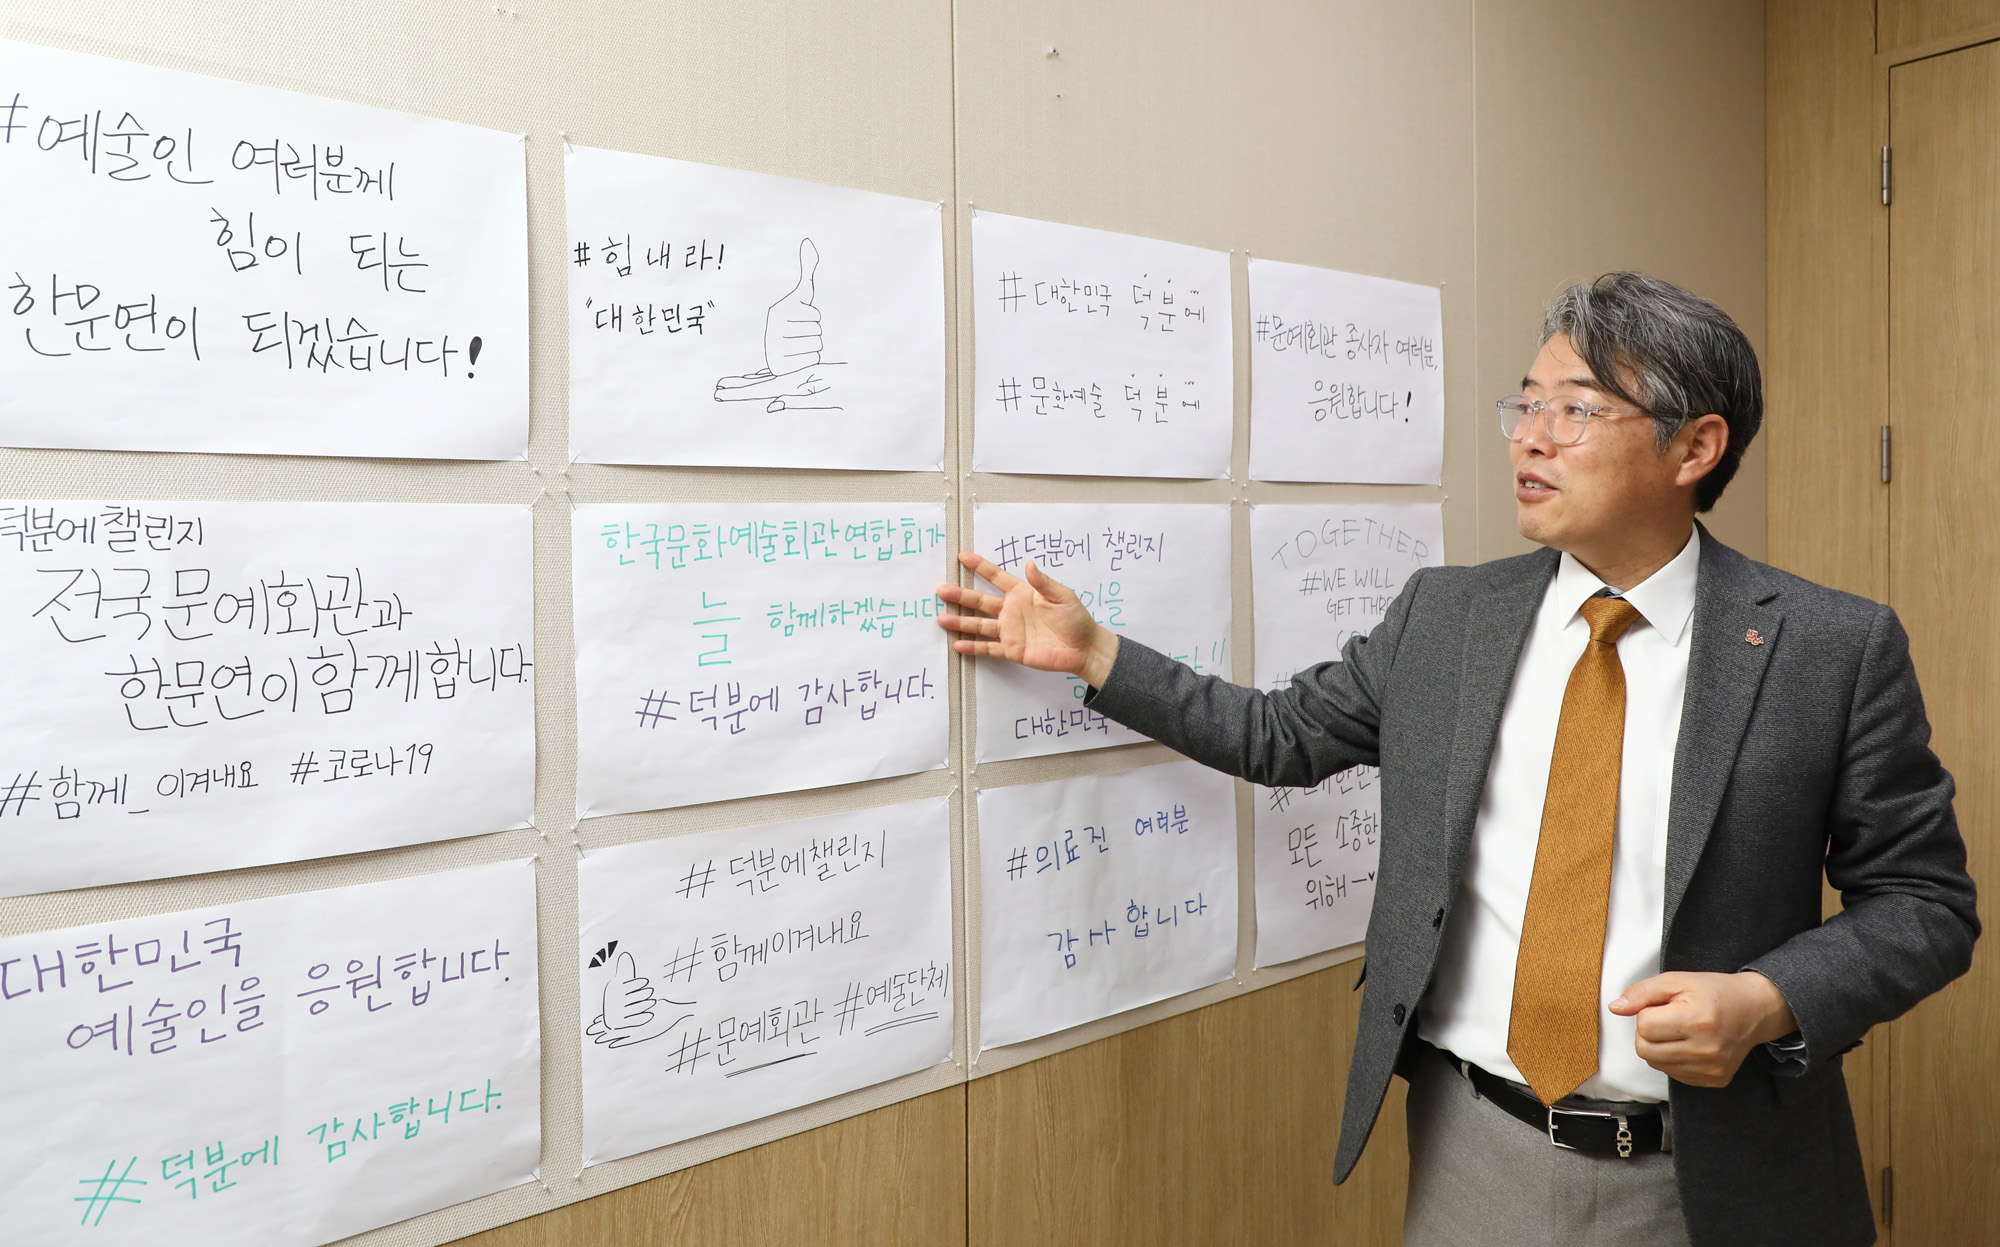 #예술인 여러분께
힘이 되는
한문연이 되겠습니다!
#힘내라!
"대한민국"
#대한민국 덕분에
#문화예술 덕분에
#문예회관 종사자 여러분,
응원합니다!
덕분에챌린지
전국문예회관과
한문연이함께합니다.
#함께_이겨내요 #코로나19
한국문화예술회관연합회가
늘 함께하겠습니다
#덕분에 감사합니다.
#덕분에 챌린지
인을
대한민국
TOGETHER
#WE WILL
GET THRO
대한민국
예술인을 응원합니다.
#덕분에 감사합니다.
#덕분에챌린지
#함께이겨내요
#문예회관 #예술단체
#의료진 여러분
감사합니다
모든 소중한
위해-♥